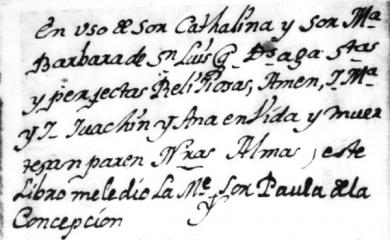 En uso de Sor Cathalina y Sor Ma
Barbara de Sn Luis q Ds aga stas
y perfectas Religiosas, Amen, J Ma
y J Juachin y Ana en Vida y muer
te sanparen Nras Almas, este
Libro me le dio La Me Sor Paula de la
Concepcion